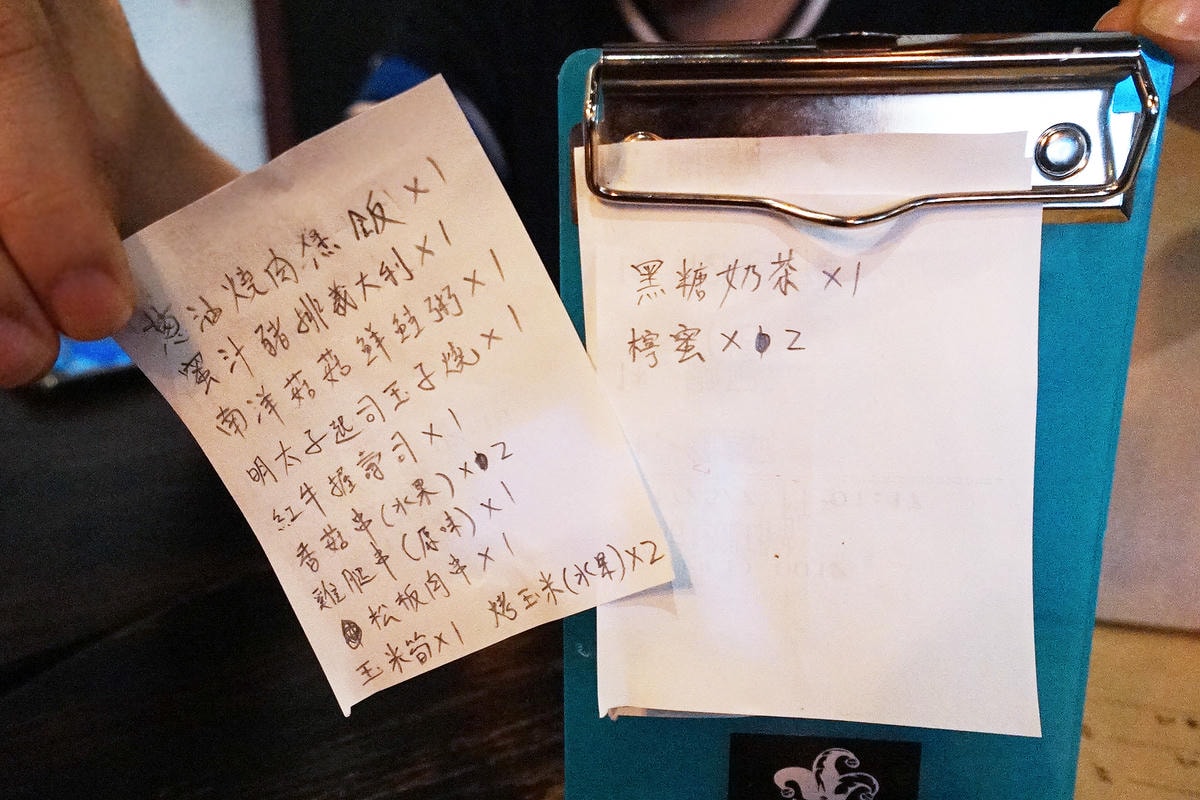 蔥油燒肉煲飯×1
蜜汁豬排義大利×1
南洋菇菇鮮鮭粥×1
明太子起司玉子燒×1
紅牛握壽司×1
香菇串(水果)×2
雞腿串(原味)×1
松板肉串×1
玉米筍×1 烤玉米(水果)×2
黑糖奶茶×1
檸蜜×2